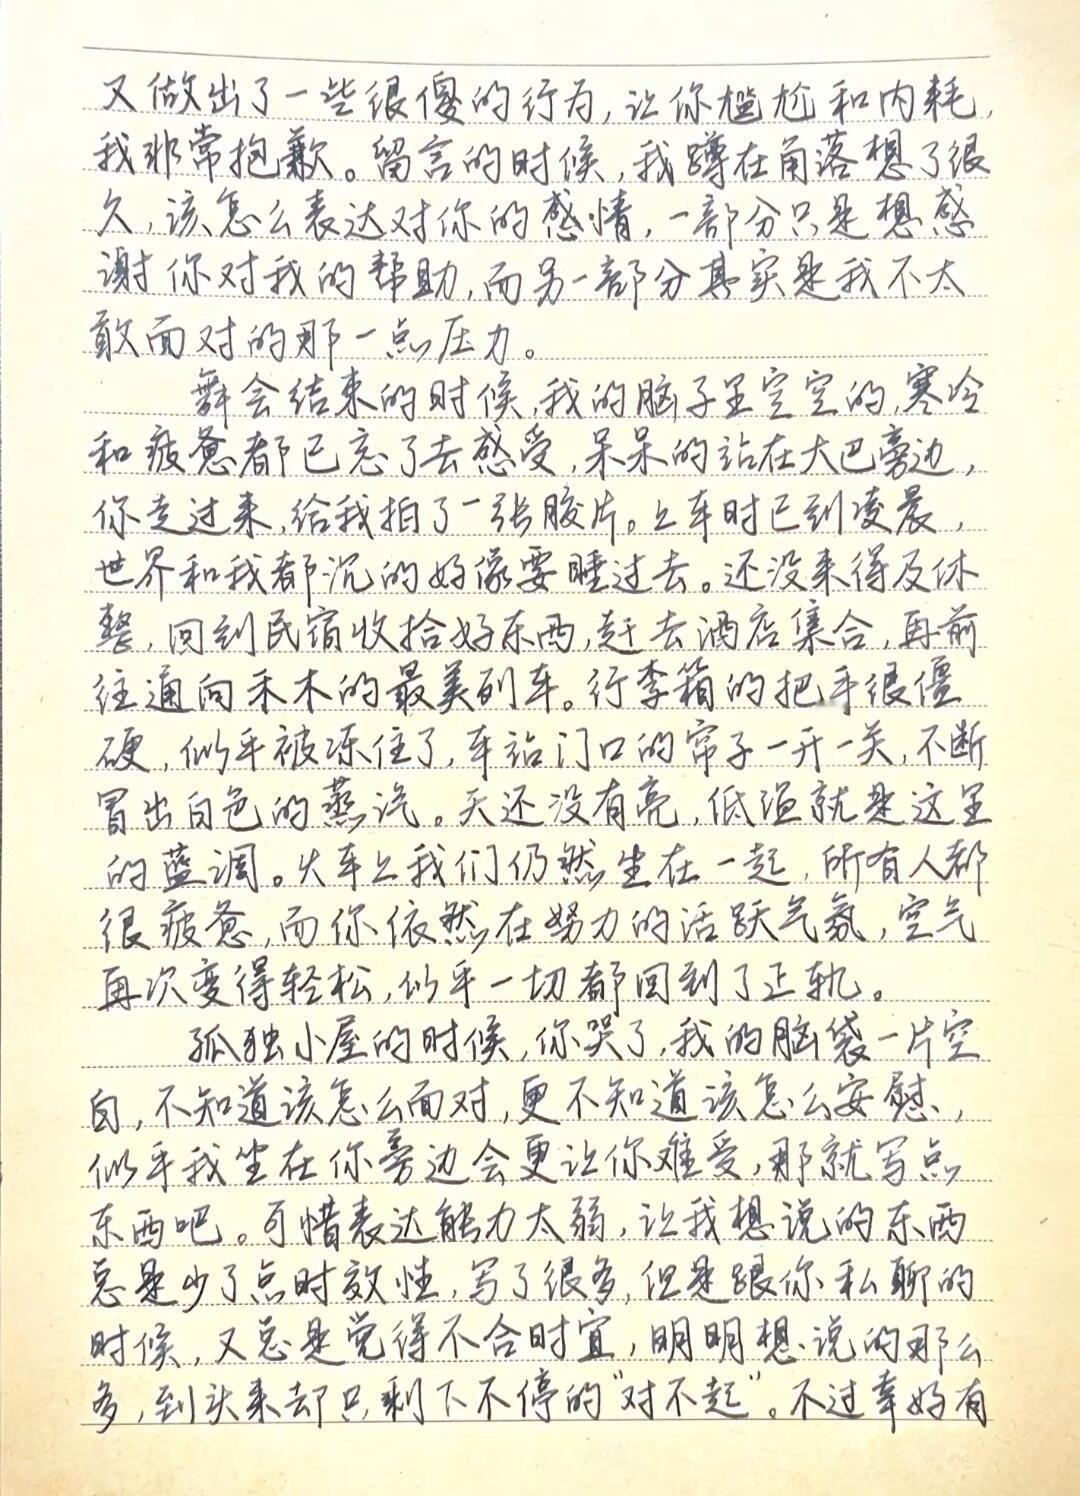 又做出了一些很傻的行为，让你尴尬和内耗，
我非常抱歉。留言的时候，我蹲在角落想了很
久，该怎么表达对你的感情，一部分只是想感
谢你对我的帮助，而另一部分其实是我不太
敢面对的那一点压力。
舞会结束的时候，我的脑子里空空的，寒冷
和疲惫都已忘了去感受，呆呆的站在大巴旁边，
你走过来，给我拍了一张胶片。上车时已到凌晨，
世界和我都沉的好像要睡过去。还没来得及休
整，回到民宿收拾好东西，赶去酒店集合，再前
往通向禾木的最美列车。行李箱的把手很僵
硬，似乎被冻住了，车站门口的帘子一开一关，不断
冒出白色的蒸汽。天还没有亮，低温就是这里
的蓝调。火车上我们仍然坐在一起，所有人都
很疲惫，而你依然在努力的活跃气氛，空气
再次变得轻松，似乎一切都回到了正轨。
孤独小屋的时候，你哭了，我的脑袋一片空
白，不知道该怎么面对，更不知道该怎么安慰，
似乎我坐在你旁边会更让你难受，那就写点
东西吧。可惜表达能力太弱，让我想说的东西
总是少了点时效性，写了很多，但是跟你私聊的
时候，又总是觉得不合时宜，明明想说的那么
多，到头来却只剩下不停的“对不起”。不过幸好有